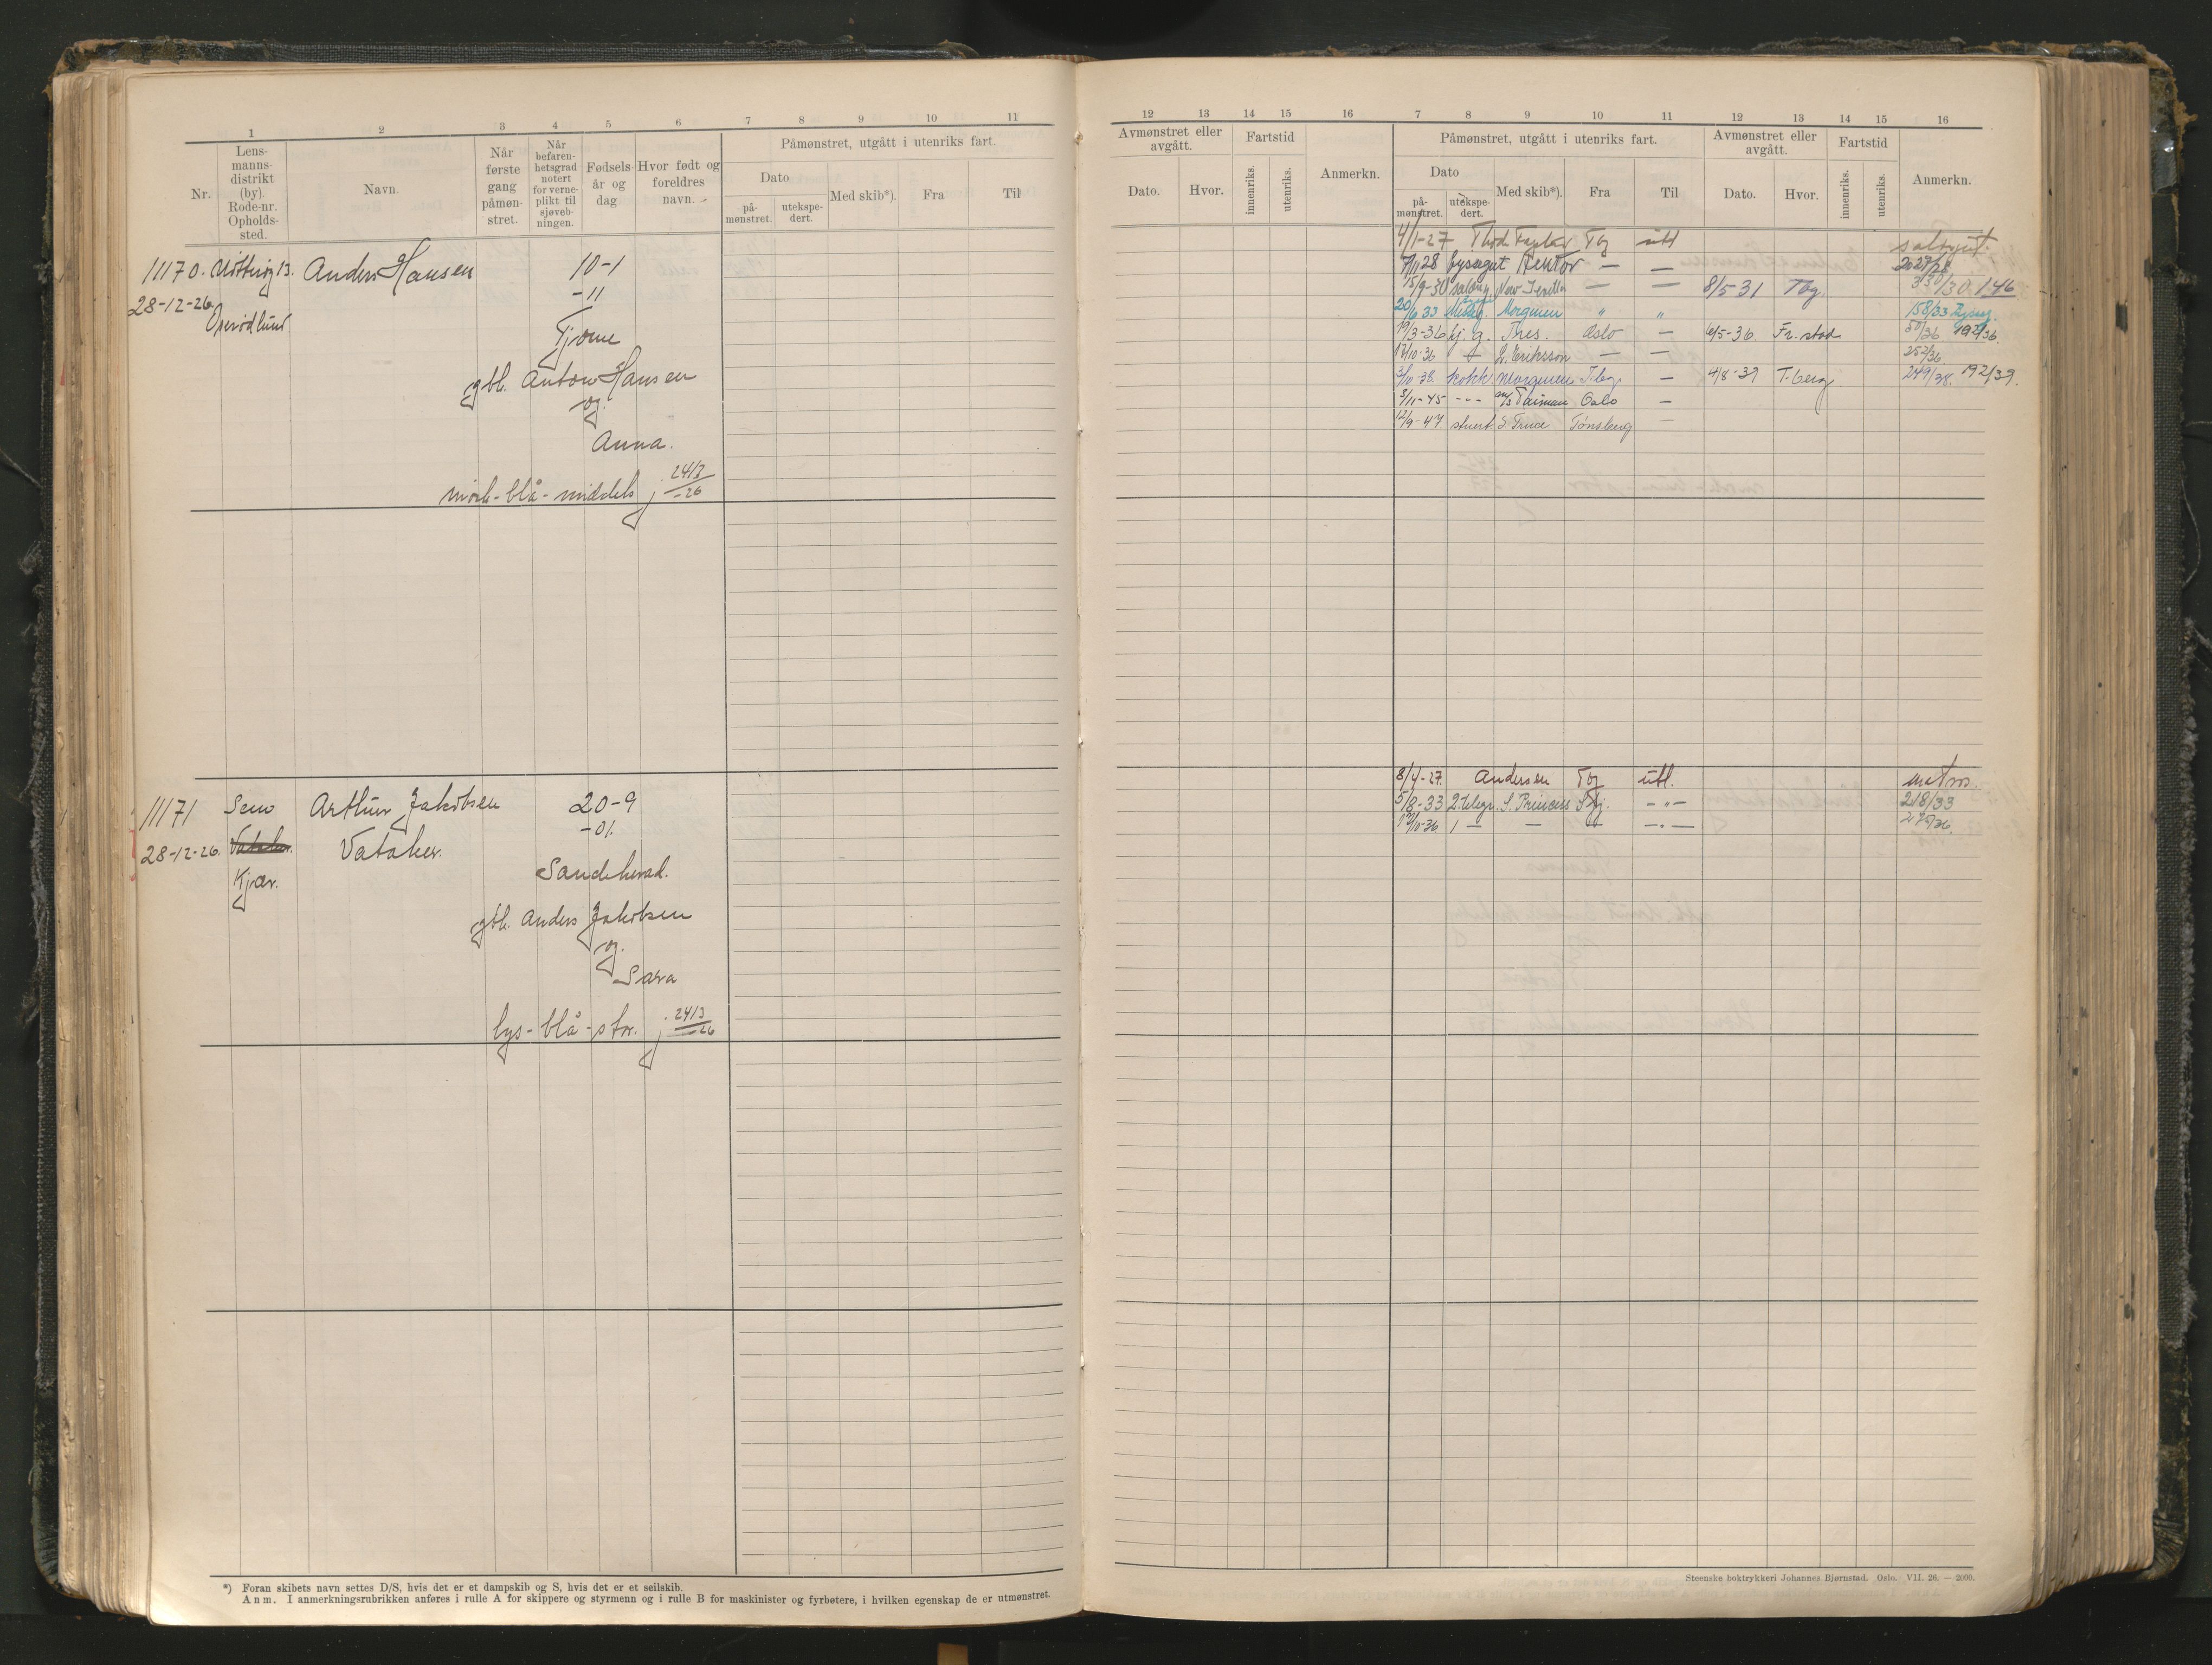 1 2 3 4 5 6 7 8 9 10 11
Nr.
Lens-
manns-
distrikt
(by).
Rode-nr.
Opholds-
sted.
Navn.
Når
første
gang
påmøn-
stret.
Når
befaren-
hetsgrad
notert
for verne-
plikt til
sjøveb-
ningen.
Fødsels-
år og
dag
Hvor født og
foreldres
navn.
Påmønstret, utgått i utenriks fart.
Dato
på-
mønstret.
utekspe-
dert.
Med skib*).
Fra
Til
11170. Nøtterøy 13. Anders Hansen 10-1
28-12-26. -11
Tjøme
gbl. Anton Hansen
og
Anna.
mørk-blå-middels 24/3
-26
11171 Sem Arthur Jakobsen 20-9
-01.
28-12-26. Vataker.
Kjær.
Sandeherad.
gbl. Anders Jakobsen
og
Sara
lys-blå-stor. 24/3
-26
*) Foran skibets navn settes D/S, hvis det er et dampskib og S, hvis det er et seilskib.
Anm. I anmerkningsrubrikken anføres i rulle A for skippere og styrmenn og i rulle B for maskinister og fyrbøtere, i hvilken egenskap de er utmønstret.
12 13 14 15 16 7 8 9 10 11 12 13 14 15 16
Avmønstret eller
avgått.
Dato.
Hvor.
Fartstid
innenriks.
utenriks.
Anmerkn.
Påmønstret, utgått i utenriks fart.
Dato
på-
mønstret.
utekspe-
dert.
Med skib*).
Fra
Til
Avmønstret eller
avgått.
Dato.
Hvor.
Fartstid
innenriks.
utenriks.
Anmerkn.
4/1-27 Thode Fagelund Tbg utl
7/11 28 Hektor — —
15/9-30 New Sevilla — — 8/5-31 Tbg. 146
20/6 33 Morgenen " " 158/33
19/3-36 Thes. Oslo — 6/5-36 Fr.stad 50/36 192/36.
17/10-36 L. Eriksson — — 252/36
3/10-38. kokk. Morgenen T.bg — 4/8-39 T.berg 249/38. 192/39.
5/11-45 -"- m/s Taiman Oslo —
12/9-47 stuert S. Truce Tønsberg —
8/4-27 Andersen Tbg utl. matros.
5/8-33 2.telegr. S. Princess Sfj. -"- 218/33
17/10-36 1 — — — -"- 275/36.
Steenske boktrykkeri Johannes Bjørnstad. Oslo. VII. 26. — 2000.